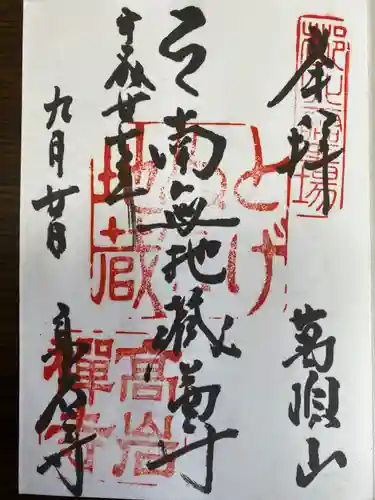 奉拝
萬頂山
南無地蔵尊
九月廿日
高岩寺
とげ
ぬき
地蔵
高岩
禅寺